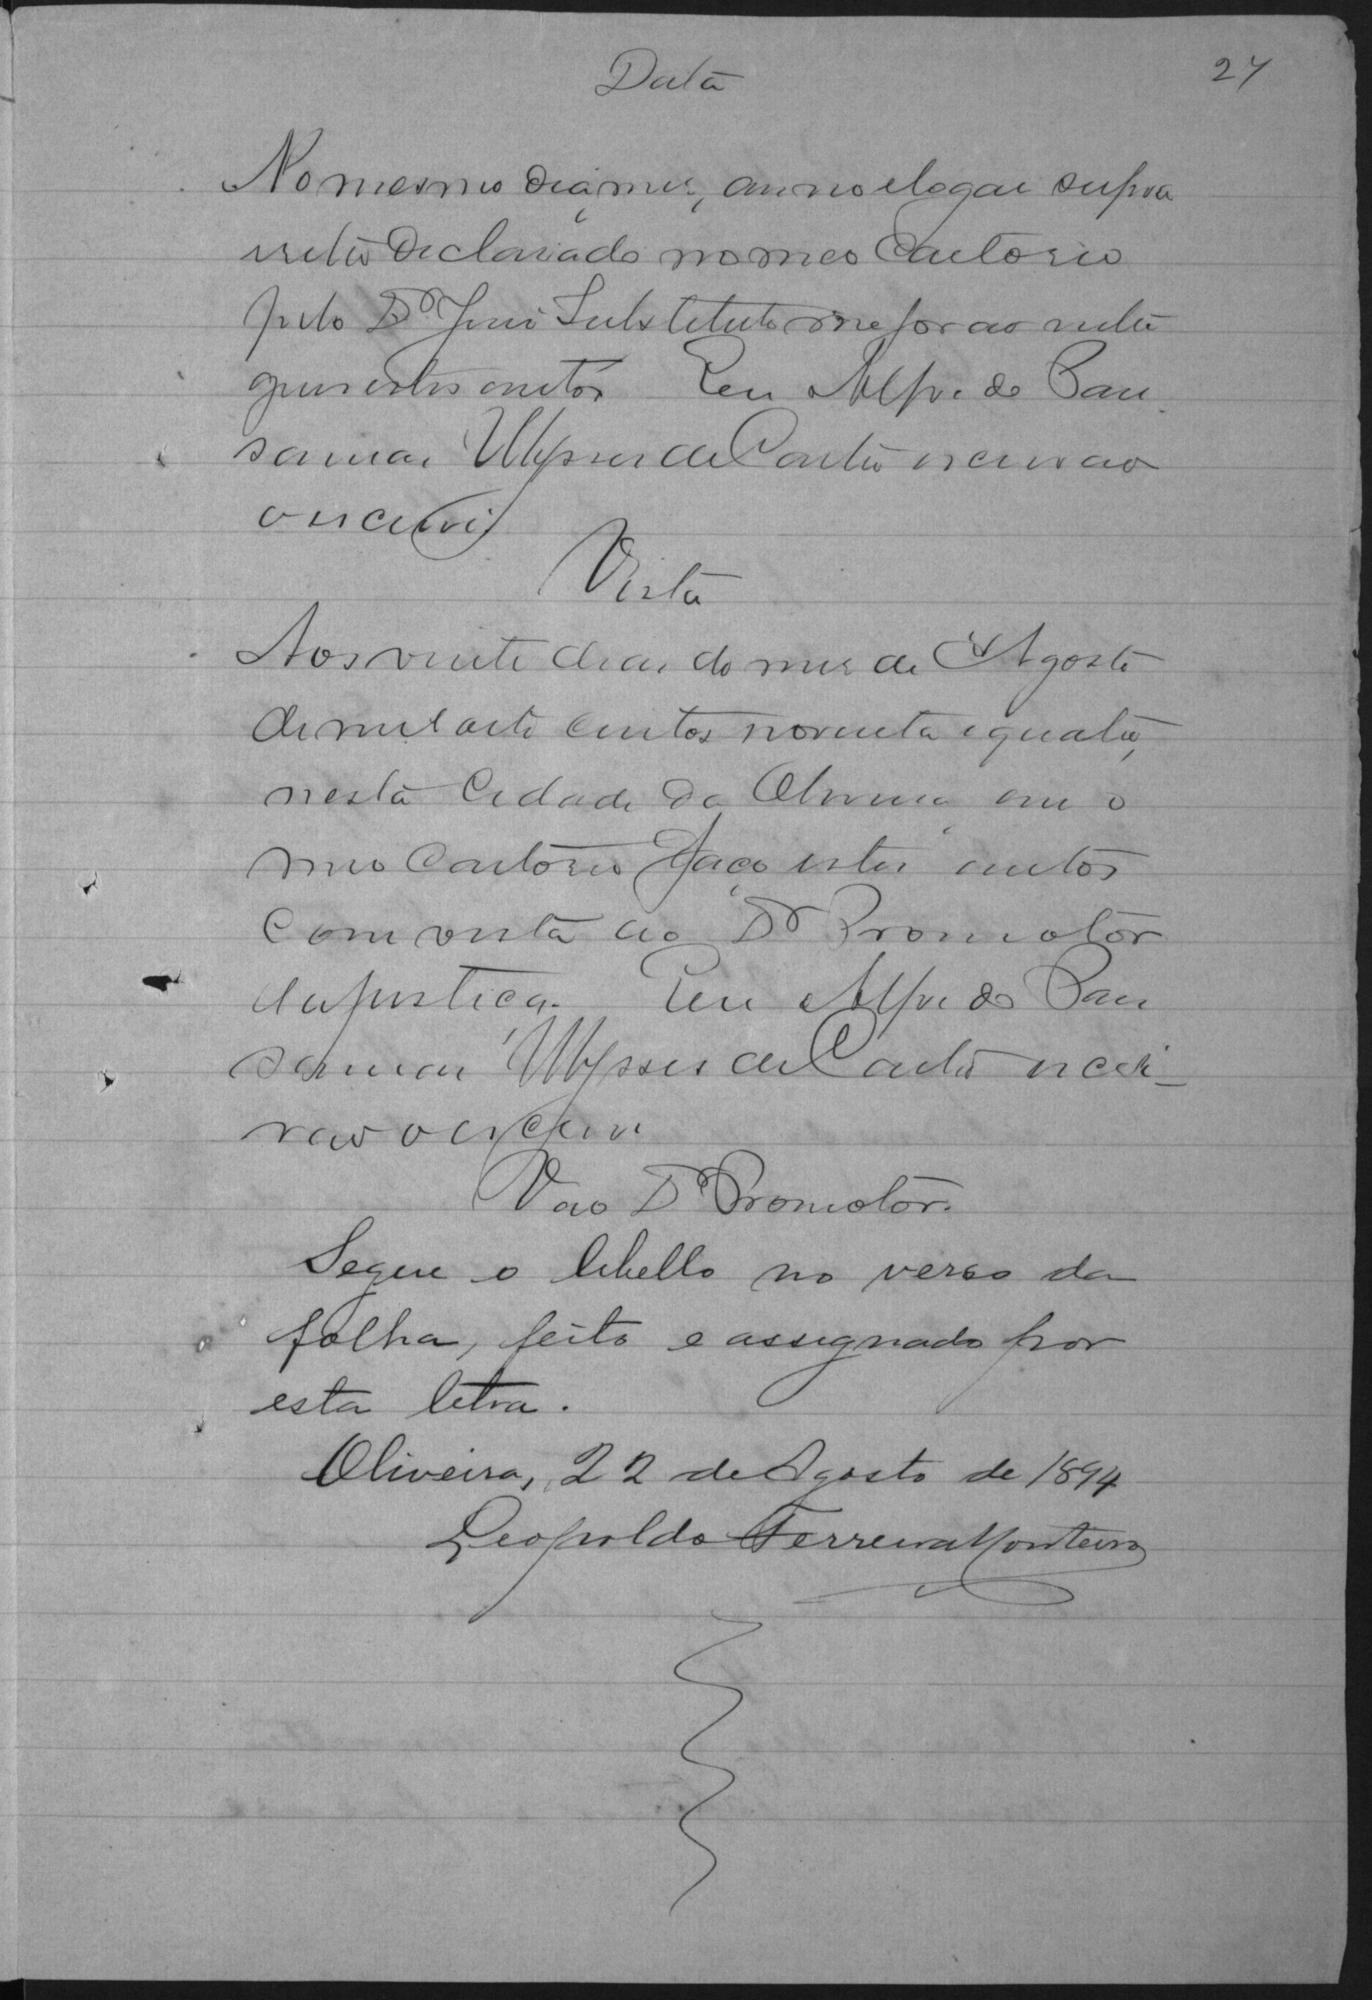 Data
27
No mesmo dia, mes, anno e logar supra
retro declarado no meo Cartorio
pelo Dr Juiz Substituto me forao
estes autos Eu Alfredo Pau
Ulysses de Castro escrivao
o escrevi
Vista
Aos vinte dias do mes de Agosto
de mil oito centos noventa e quatro,
nesta Cidade da Oliveira em o
meo Cartorio faço estes autos
com vista ao Dr Promotor
da justiça. Eu Alfredo Pau
Ulysses de Castro escri-
vao o escrevi
V ao Dr Promotor.
Segue o libello no verso da
folha, feito e assignado por
esta letra.
Oliveira, 22 de Agosto de 1894
Leopoldo Ferreira Monteiro